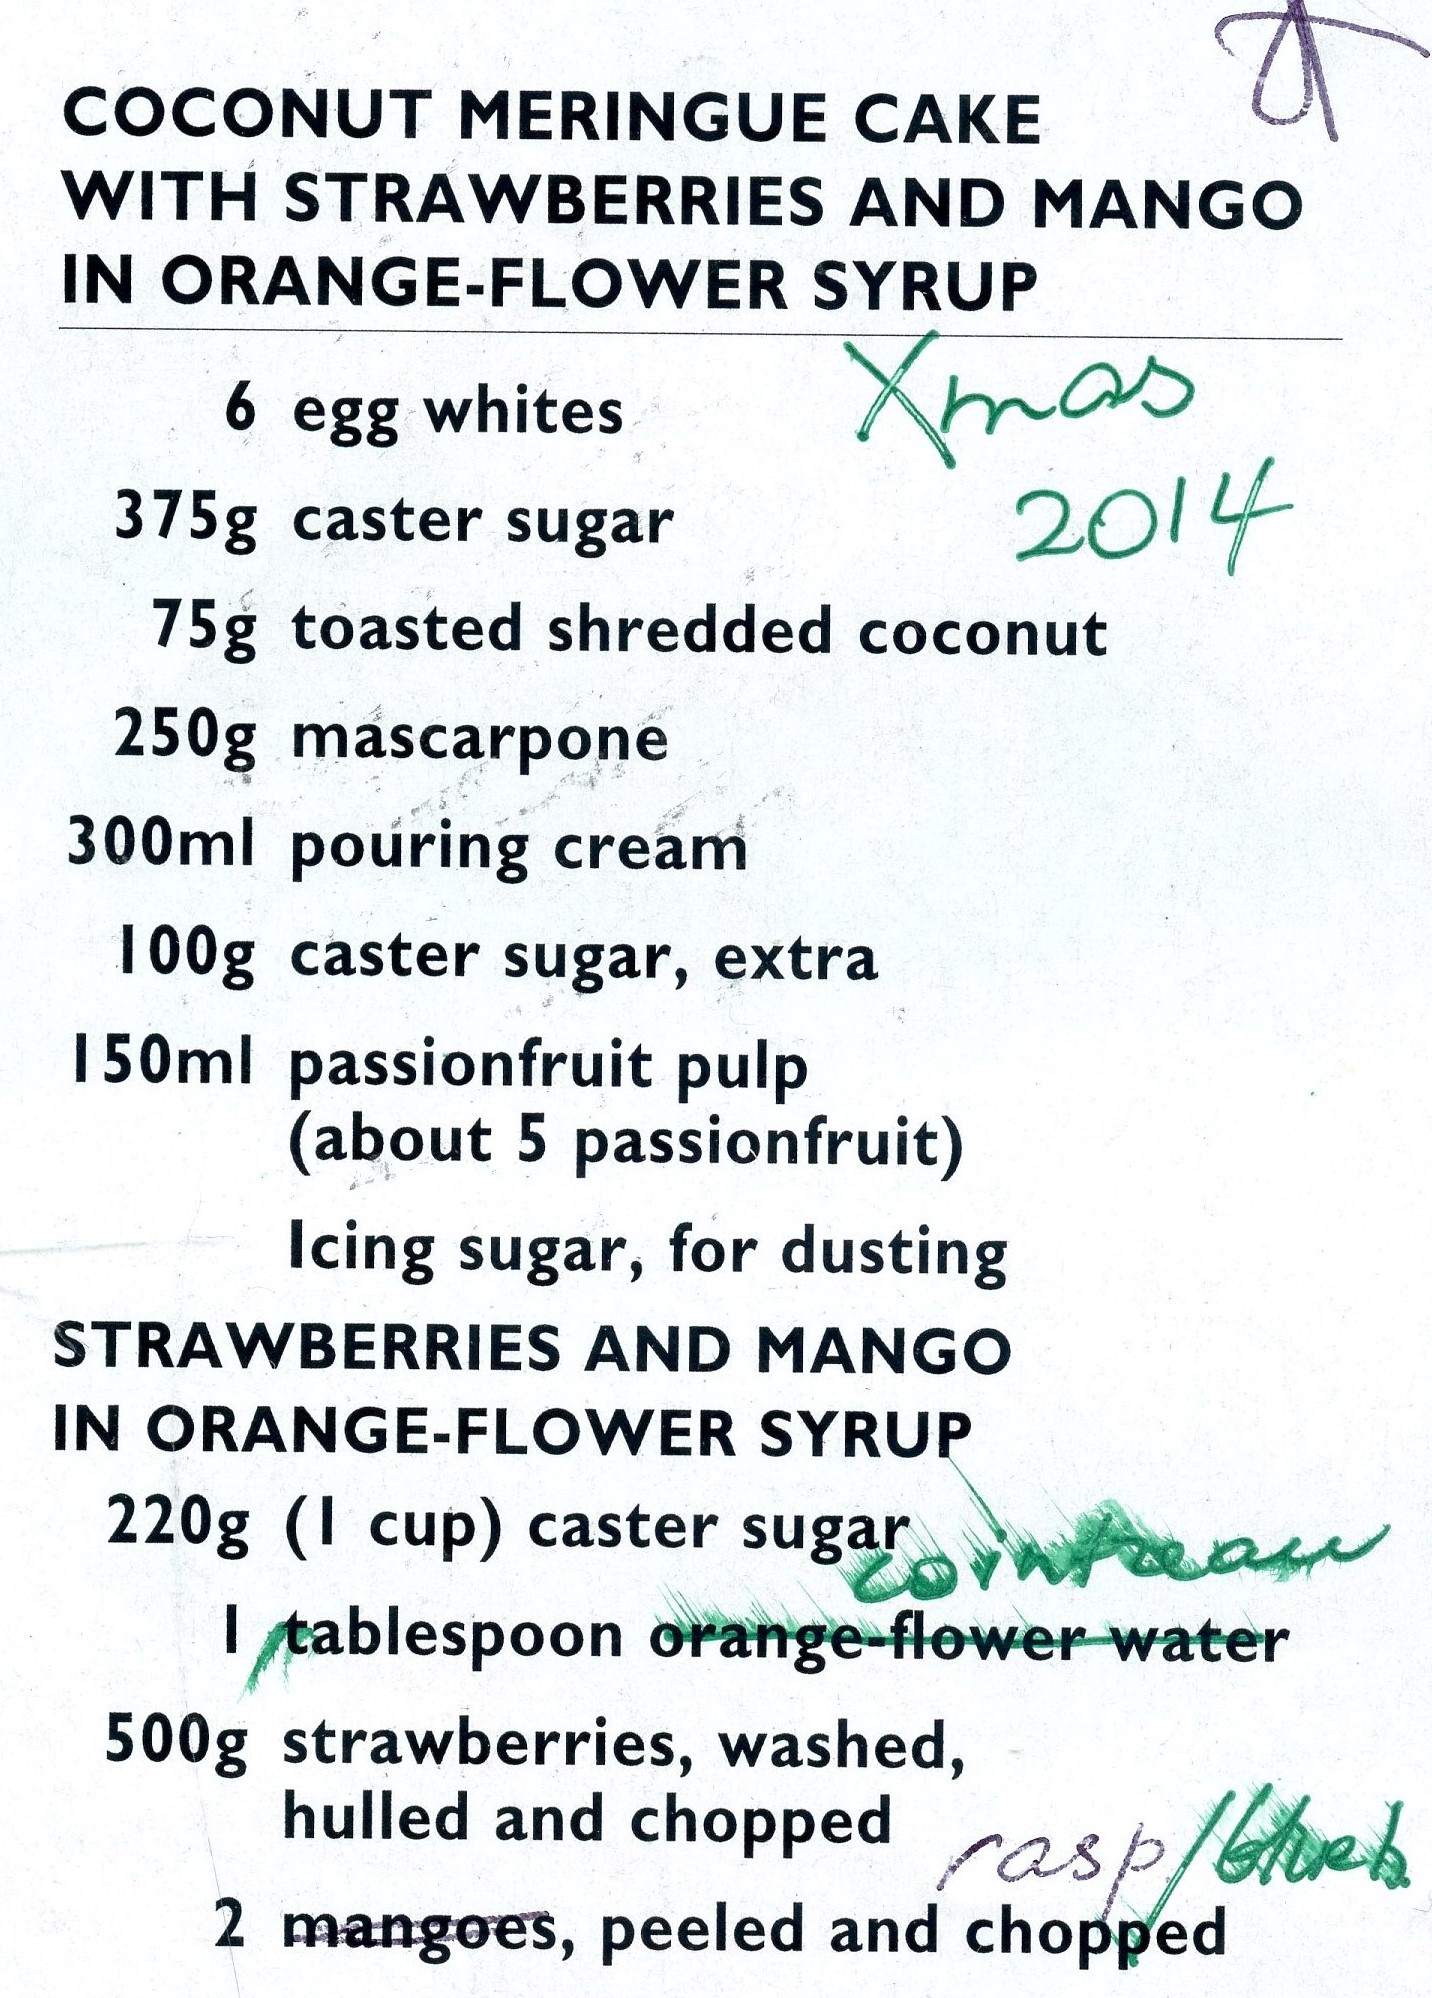 COCONUT MERINGUE CAKE
WITH STRAWBERRIES AND MANGO
IN ORANGE-FLOWER SYRUP
Xmas
2014
6 egg whites
375g caster sugar
75g toasted shredded coconut
250g mascarpone
300ml pouring cream
100g caster sugar, extra
150ml passionfruit pulp
(about 5 passionfruit)
Icing sugar, for dusting
STRAWBERRIES AND MANGO
IN ORANGE-FLOWER SYRUP
220g (1 cup) caster sugar
cointreau
1 tablespoon orange-flower water
500g strawberries, washed,
hulled and chopped
rasp/blueb
2 mangoes, peeled and chopped